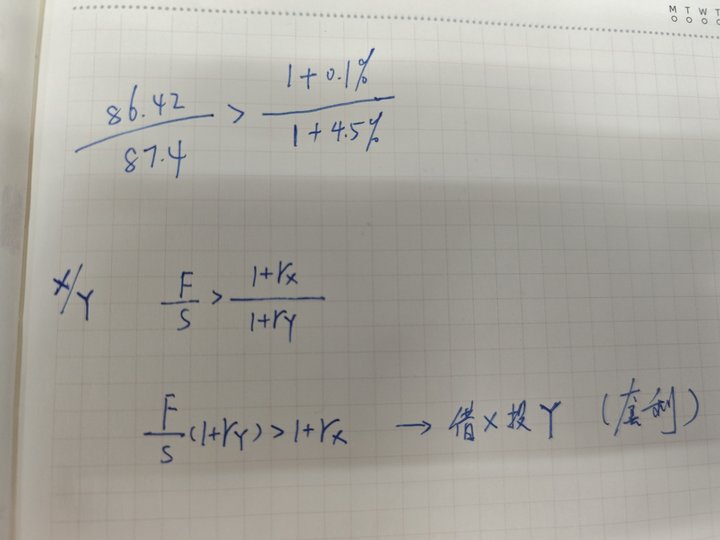 M T W T
86.42/87.4 > (1+0.1%)/(1+4.5%)
X/Y F/S > (1+rx)/(1+rY)
F/S (1+rY) > 1+rx → 借X投Y (套利)